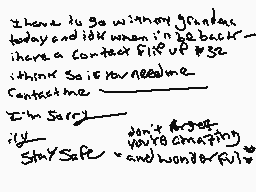 I have to go with my grandma
today and idk when i'm be back
i have a contact flip up #32
i think so if you need me
contact me
I'm sorry
ily
Stay Safe
don't forget
you're amazing
and wonderful